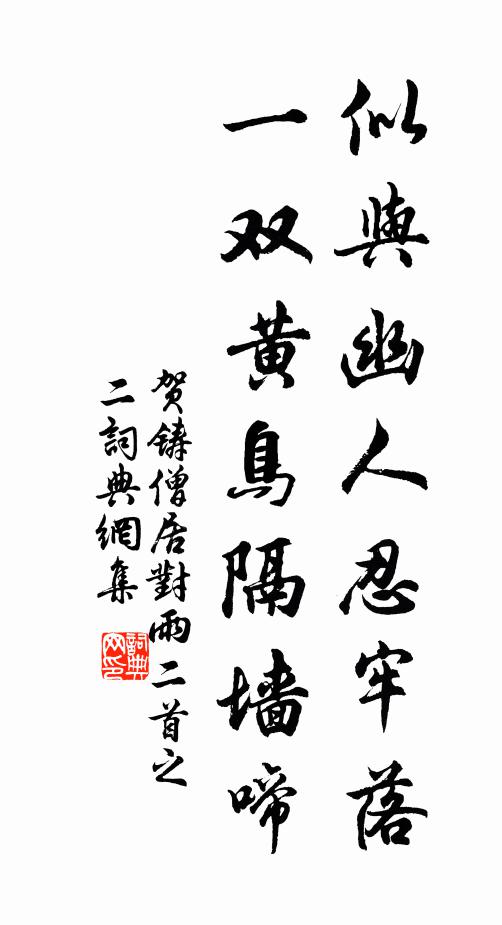 似與幽人忍牢落
一双黄鳥隔墻啼
贺鑄僧居對兩二首之
二詞典網集
詞典网印